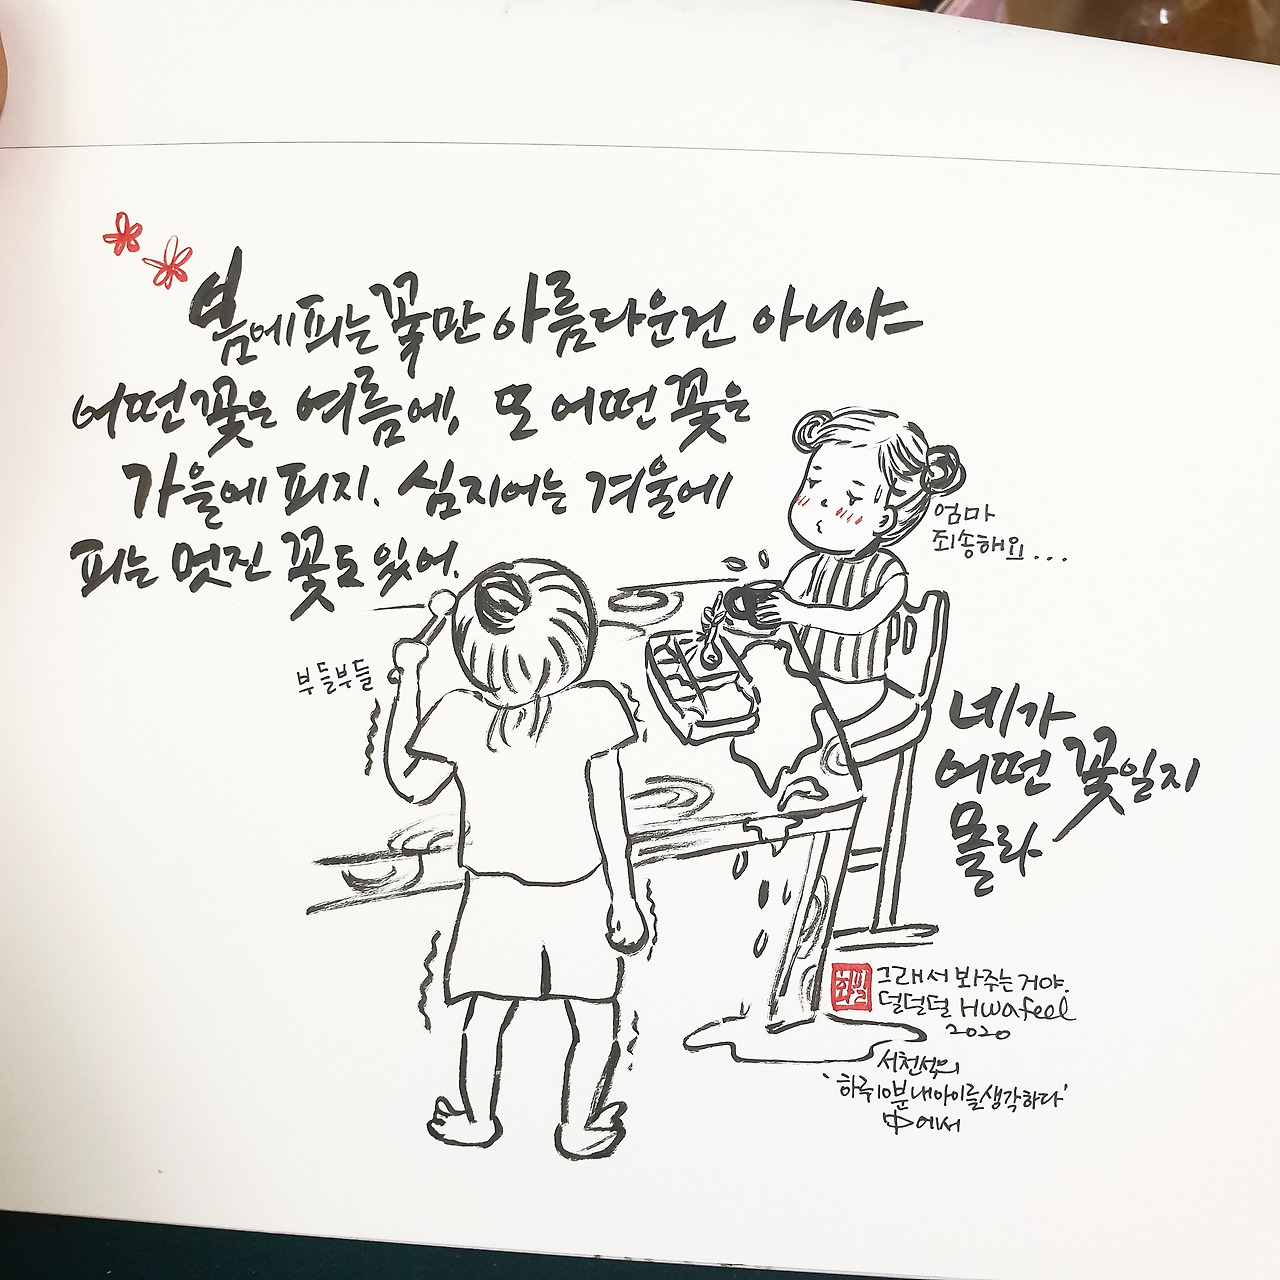 봄에 피는 꽃만 아름다운건 아니야
어떤 꽃은 여름에, 또 어떤 꽃은
가을에 피지. 심지어는 겨울에
피는 멋진 꽃도 있어.
엄마
죄송해요...
부들부들
네가
어떤 꽃일지
몰라
화필
그래서 봐주는거야.
덜덜덜 Hwafeel
2020
서천석의
'하루10분내아이를생각하다'
中에서